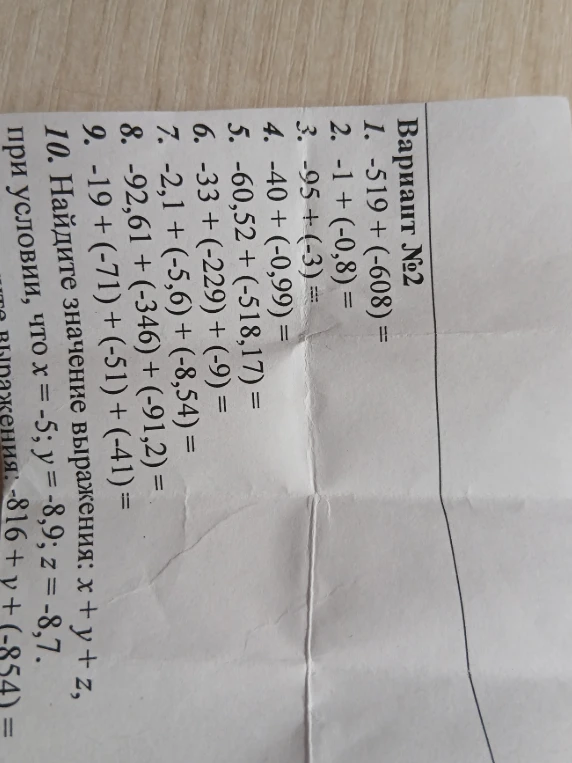 Вариант №2
1. -519 + (-608) =
2. -1 + (-0,8) =
3. -95 + (-3) =
4. -40 + (-0,99) =
5. -60,52 + (-518,17) =
6. -33 + (-229) + (-9) =
7. -2,1 + (-5,6) + (-8,54) =
8. -92,61 + (-346) + (-91,2) =
9. -19 + (-71) + (-51) + (-41) =
10. Найдите значение выражения: x + y + z,
при условии, что x = -5; y = -8,9; z = -8,7.
выражения: -816 + y + (-854) =